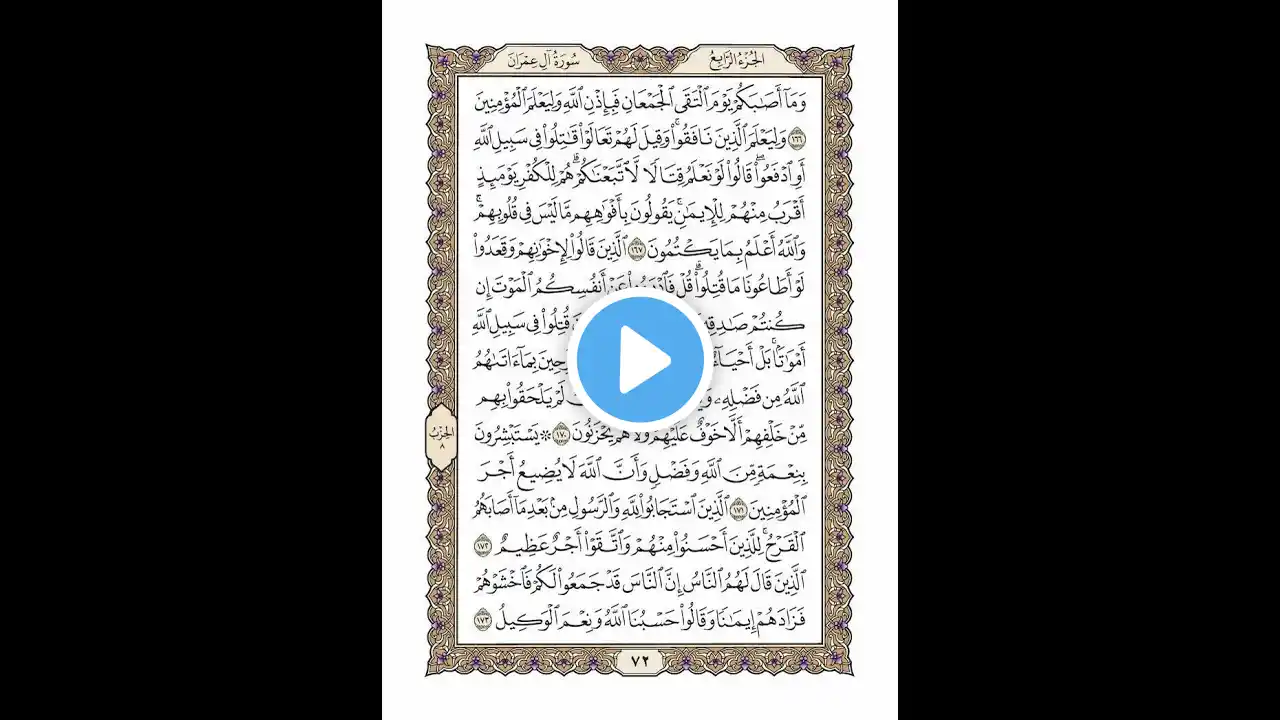 الجُزْءُ الرَّابِعُ
سُورَةُ آلِ عِمْرَانَ
وَمَآ أَصَٰبَكُمْ يَوْمَ ٱلْتَقَى ٱلْجَمْعَانِ فَبِإِذْنِ ٱللَّهِ وَلِيَعْلَمَ ٱلْمُؤْمِنِينَ
١٦٦ وَلِيَعْلَمَ ٱلَّذِينَ نَافَقُوا۟ۚ وَقِيلَ لَهُمْ تَعَالَوْا۟ قَٰتِلُوا۟ فِى سَبِيلِ ٱللَّهِ
أَوِ ٱدْفَعُوا۟ۖ قَالُوا۟ لَوْ نَعْلَمُ قِتَالًا لَّٱتَّبَعْنَٰكُمْۗ هُمْ لِلْكُفْرِ يَوْمَئِذٍ
أَقْرَبُ مِنْهُمْ لِلْإِيمَٰنِۚ يَقُولُونَ بِأَفْوَٰهِهِم مَّا لَيْسَ فِى قُلُوبِهِمْۚ
وَٱللَّهُ أَعْلَمُ بِمَا يَكْتُمُونَ ١٦٧ ٱلَّذِينَ قَالُوا۟ لِإِخْوَٰنِهِمْ وَقَعَدُوا۟
لَوْ أَطَاعُونَا مَا قُتِلُوا۟ۗ قُلْ عَنْ أَنفُسِكُمُ ٱلْمَوْتَ إِن
كُنتُمْ قُتِلُوا۟ فِى سَبِيلِ ٱللَّهِ
أَمْوَٰتًۢاۚ بَلْ بِمَآ ءَاتَىٰهُمُ
ٱللَّهُ مِن فَضْلِهِۦ لَمْ يَلْحَقُوا۟ بِهِم
مِّنْ خَلْفِهِمْ أَلَّا خَوْفٌ عَلَيْهِمْ وَلَا هُمْ يَحْزَنُونَ ١٧٠ ۞ يَسْتَبْشِرُونَ
بِنِعْمَةٍ مِّنَ ٱللَّهِ وَفَضْلٍ وَأَنَّ ٱللَّهَ لَا يُضِيعُ أَجْرَ
ٱلْمُؤْمِنِينَ ١٧١ ٱلَّذِينَ ٱسْتَجَابُوا۟ لِلَّهِ وَٱلرَّسُولِ مِنۢ بَعْدِ مَآ أَصَابَهُمُ
ٱلْقَرْحُۚ لِلَّذِينَ أَحْسَنُوا۟ مِنْهُمْ وَٱتَّقَوْا۟ أَجْرٌ عَظِيمٌ ١٧٢
ٱلَّذِينَ قَالَ لَهُمُ ٱلنَّاسُ إِنَّ ٱلنَّاسَ قَدْ جَمَعُوا۟ لَكُمْ فَٱخْشَوْهُمْ
فَزَادَهُمْ إِيمَٰنًا وَقَالُوا۟ حَسْبُنَا ٱللَّهُ وَنِعْمَ ٱلْوَكِيلُ ١٧٣
الحِزْبُ
٨
٧٢